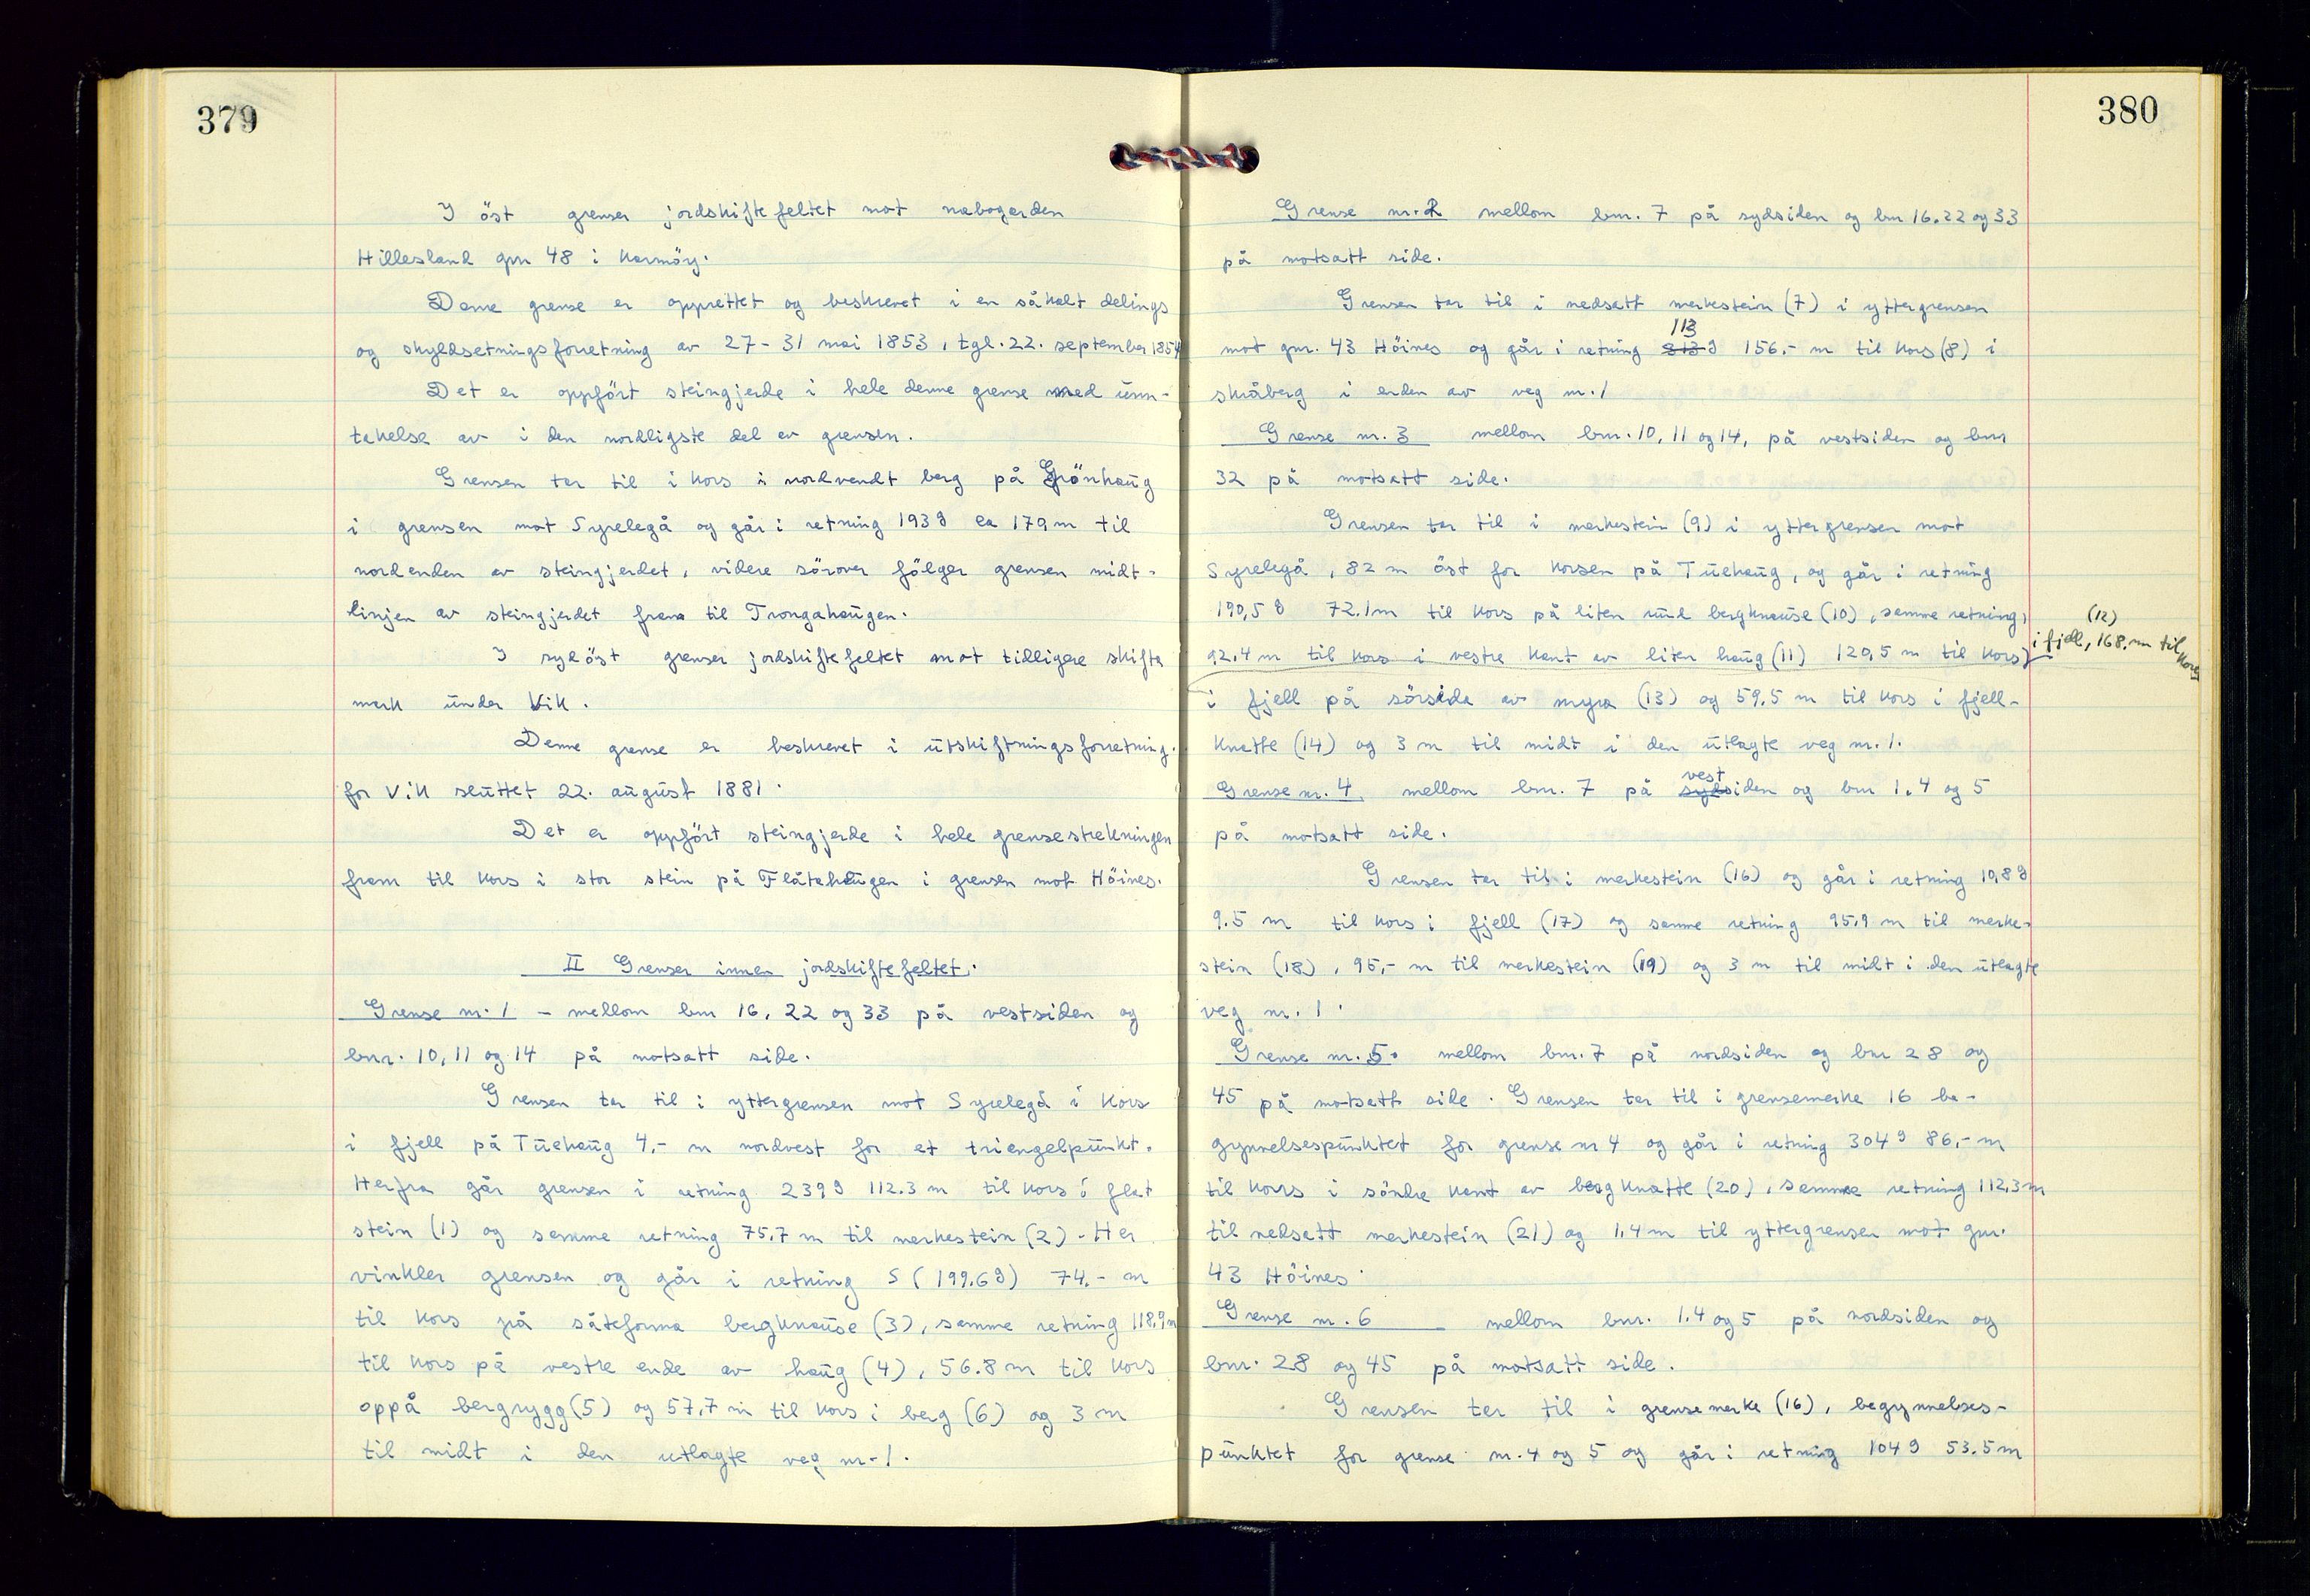 379
I öst grenser jordskiftefeltet mot nabogarden
Hillesland gnr 48 i Karmöy.
Denne grense er opprettet og beskrevet i en såkalt delings
og skyldsetningsforretning av 27-31 mai 1853, tgl. 22. september 1854
Det er oppfört steingjerde i hele denne grense med unn-
takelse av i den nordligste del av grensen.
Grensen tar til i kors i nordvendt berg på Grönhaug
i grensen mot Syrelegå og går i retning 193g ca 179 m til
nordenden av steingjerdet, videre sörover fölger grensen midt-
linjen av steingjerdet fram til Trongahaugen.
I sydöst grenser jordskiftefeltet mot tidligere skifta
mark under Vik.
Denne grense er beskrevet i utskiftningsforretning.
for Vik sluttet 22. august 1881.
Det er oppfört steingjerde i hele grensestrekningen
fram til kors i stor stein på Flåtehaugen i grensen mot Höines.
II Grenser innen jordskiftefeltet.
Grense nr. 1 - mellom bnr 16, 22 og 33 på vestsiden og
bnr. 10, 11 og 14 på motsatt side.
Grensen tar til i yttergrensen mot Syrelegå i kors
i fjell på Tuehaug 4,- m nordvest for et triangelpunkt.
Herfra går grensen i retning 239g 112.3 m til kors i flat
stein (1) og samme retning 75,7 m til merkestein (2). Her
vinkler grensen og går i retning S (199.6g) 74.- m
til kors på såteforma bergknause (3), samme retning 118,9 m
til kors på vestre ende av haug (4), 56.8 m til kors
oppå bergrygg (5) og 57,7 m til kors i berg (6) og 3 m
til midt i den utlagte veg nr. 1.
380
Grense nr. 2 mellom bnr. 7 på sydsiden og bnr 16, 22 og 33
på motsatt side.
Grensen tar til i nedsatt merkestein (7) i yttergrensen
113
mot gnr. 43 Höines og går i retning 313g 156,- m til kors (8) i
skråberg i enden av veg nr. 1
Grense nr. 3 mellom bnr. 10, 11 og 14, på vestsiden og bnr
32 på motsatt side.
Grensen tar til i merkestein (9) i yttergrensen mot
Syrelegå, 82 m öst for korsen på Tuehaug, og går i retning
190,5g 72.1 m til kors på liten rund bergknause (10), samme retning,
92.4 m til kors i vestre kant av liten haug (11) 120,5 m til kors
(12)
i fjell, 168,- m til
kors
i fjell på sörsida av myra (13) og 59.5 m til kors i fjell-
knatte (14) og 3 m til midt i den utlagte veg nr. 1.
vest
Grense nr. 4 mellom bnr. 7 på sydsiden og bnr 1, 4 og 5
på motsatt side.
Grensen tar til i merkestein (16) og går i retning 10,8g
9.5 m til kors i fjell (17) og samme retning 95,9 m til merke-
stein (18), 95,- m til merkestein (19) og 3 m til midt i den utlagte
veg nr. 1.
Grense nr. 5. mellom bnr. 7 på nordsiden og bnr 28 og
45 på motsatt side. Grensen tar til i grensemerke 16 be-
gynnelsespunktet for grense nr 4 og går i retning 304g 86,- m
til kors i söndre kant av bergknatte (20), samme retning 112,3 m
til nedsatt merkestein (21) og 1,4 m til yttergrensen mot gnr.
43 Höines.
Grense nr. 6 mellom bnr. 1.4 og 5 på nordsiden og
bnr. 28 og 45 på motsatt side.
Grensen tar til i grensemerke (16), begynnelses-
punktet for grense nr. 4 og 5 og går i retning 104g 53.5 m